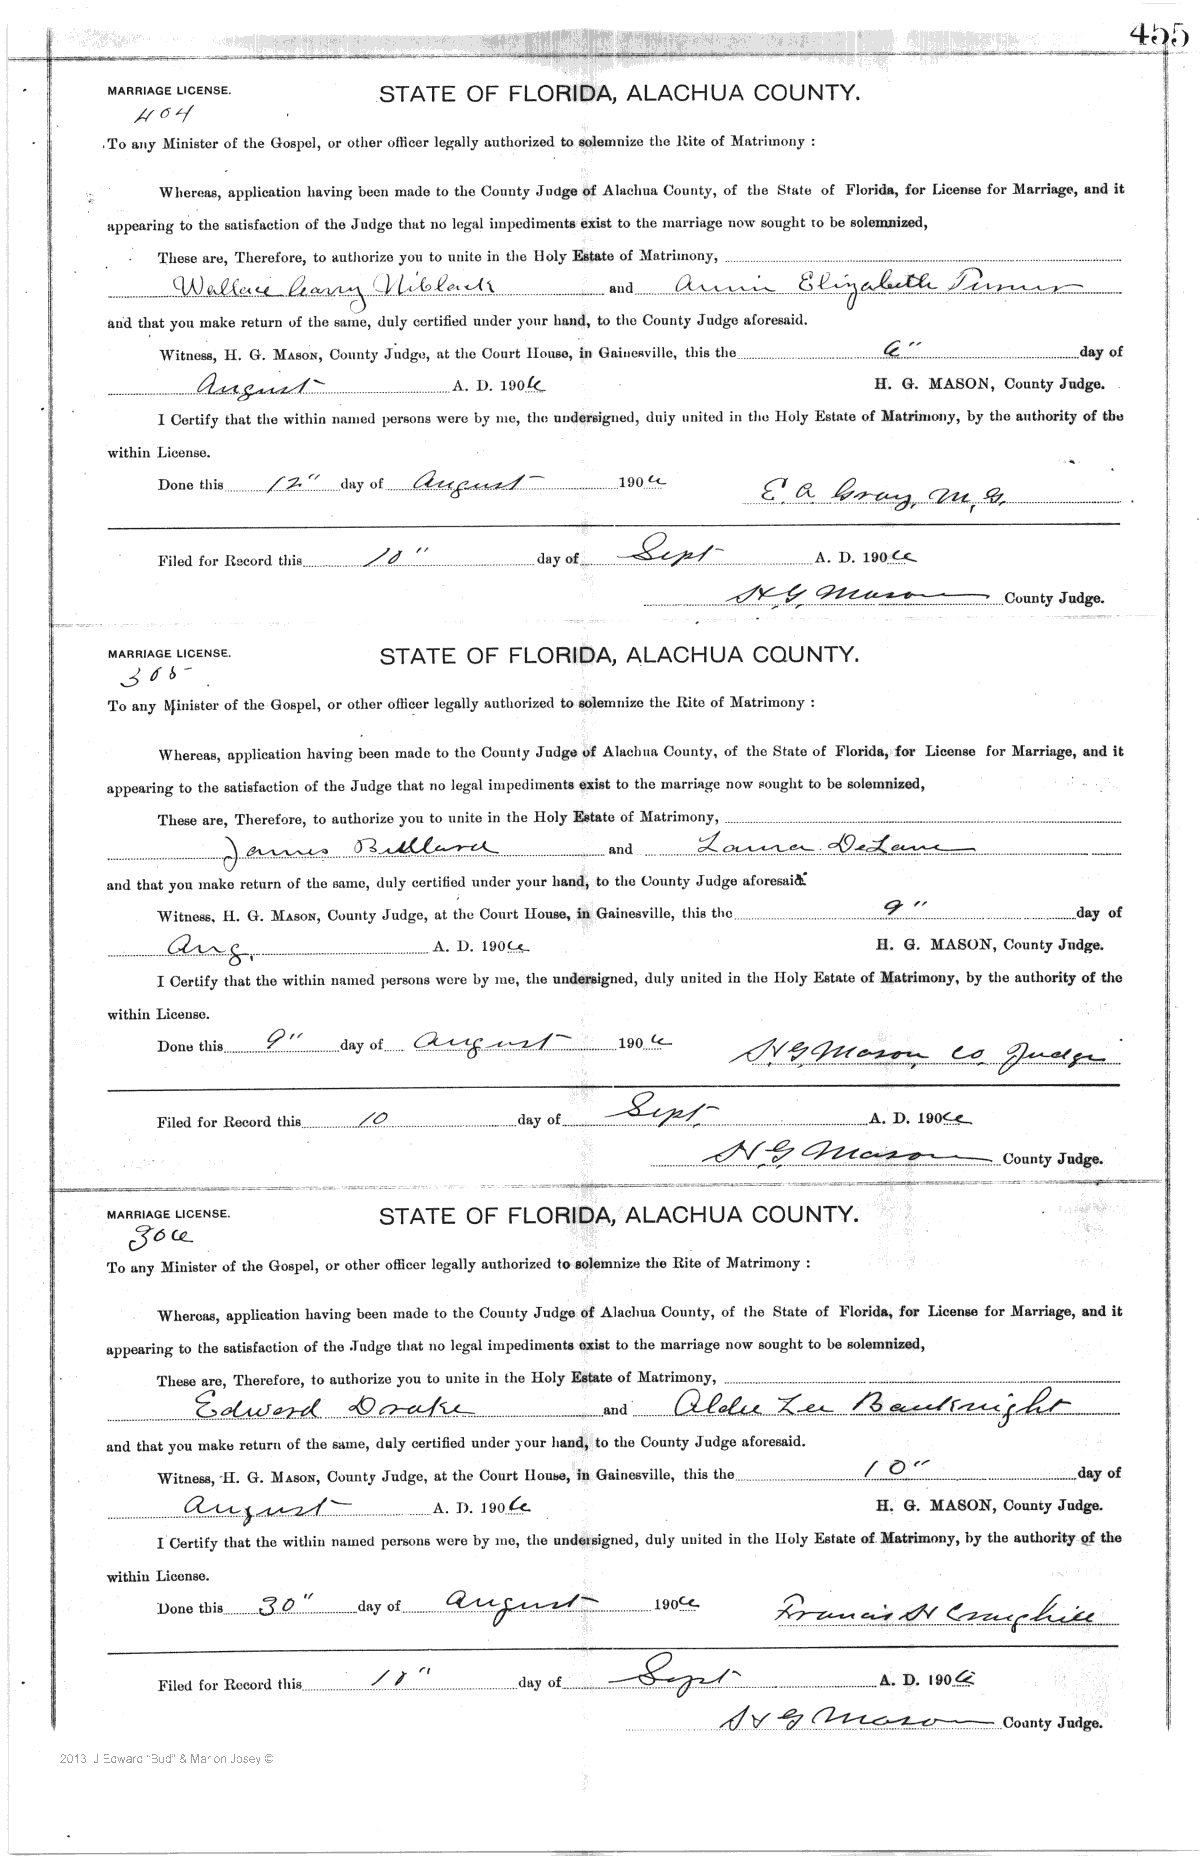 455
MARRIAGE LICENSE.
STATE OF FLORIDA, ALACHUA COUNTY.
404
To any Minister of the Gospel, or other officer legally authorized to solemnize the Rite of Matrimony :
Whereas, application having been made to the County Judge of Alachua County, of the State of Florida, for License for Marriage, and it
appearing to the satisfaction of the Judge that no legal impediments exist to the marriage now sought to be solemnized,
These are, Therefore, to authorize you to unite in the Holy Estate of Matrimony,
Wallace Carry Niblack and Annie Elizabeth Turner
and that you make return of the same, duly certified under your hand, to the County Judge aforesaid.
Witness, H. G. MASON, County Judge, at the Court House, in Gainesville, this the 6" day of
August A. D. 1906 H. G. MASON, County Judge.
I Certify that the within named persons were by me, the undersigned, duly united in the Holy Estate of Matrimony, by the authority of the
within License.
Done this 12" day of August 1906 E. A. Gray, M. G.
Filed for Record this 10" day of Sept A. D. 1906
H. G. Mason County Judge.
MARRIAGE LICENSE.
STATE OF FLORIDA, ALACHUA COUNTY.
305
To any Minister of the Gospel, or other officer legally authorized to solemnize the Rite of Matrimony :
Whereas, application having been made to the County Judge of Alachua County, of the State of Florida, for License for Marriage, and it
appearing to the satisfaction of the Judge that no legal impediments exist to the marriage now sought to be solemnized,
These are, Therefore, to authorize you to unite in the Holy Estate of Matrimony,
James and Laura DeLane
and that you make return of the same, duly certified under your hand, to the County Judge aforesaid.
Witness, H. G. MASON, County Judge, at the Court House, in Gainesville, this the 9" day of
Aug. A. D. 1906 H. G. MASON, County Judge.
I Certify that the within named persons were by me, the undersigned, duly united in the Holy Estate of Matrimony, by the authority of the
within License.
Done this 9" day of August 1906 H. G. Mason, Co. Judge
Filed for Record this 10 day of Sept. A. D. 1906
H. G. Mason County Judge.
MARRIAGE LICENSE.
STATE OF FLORIDA, ALACHUA COUNTY.
306
To any Minister of the Gospel, or other officer legally authorized to solemnize the Rite of Matrimony :
Whereas, application having been made to the County Judge of Alachua County, of the State of Florida, for License for Marriage, and it
appearing to the satisfaction of the Judge that no legal impediments exist to the marriage now sought to be solemnized,
These are, Therefore, to authorize you to unite in the Holy Estate of Matrimony,
Edward Drake and Aldee Lee Bauknight
and that you make return of the same, duly certified under your hand, to the County Judge aforesaid.
Witness, H. G. MASON, County Judge, at the Court House, in Gainesville, this the 10" day of
August A. D. 1906 H. G. MASON, County Judge.
I Certify that the within named persons were by me, the undersigned, duly united in the Holy Estate of Matrimony, by the authority of the
within License.
Done this 30" day of August 1906 Francis H Craighill
Filed for Record this 10" day of Sept A. D. 1906
H G Mason County Judge.
2013 J Edward "Bud" & Marion Josey ©